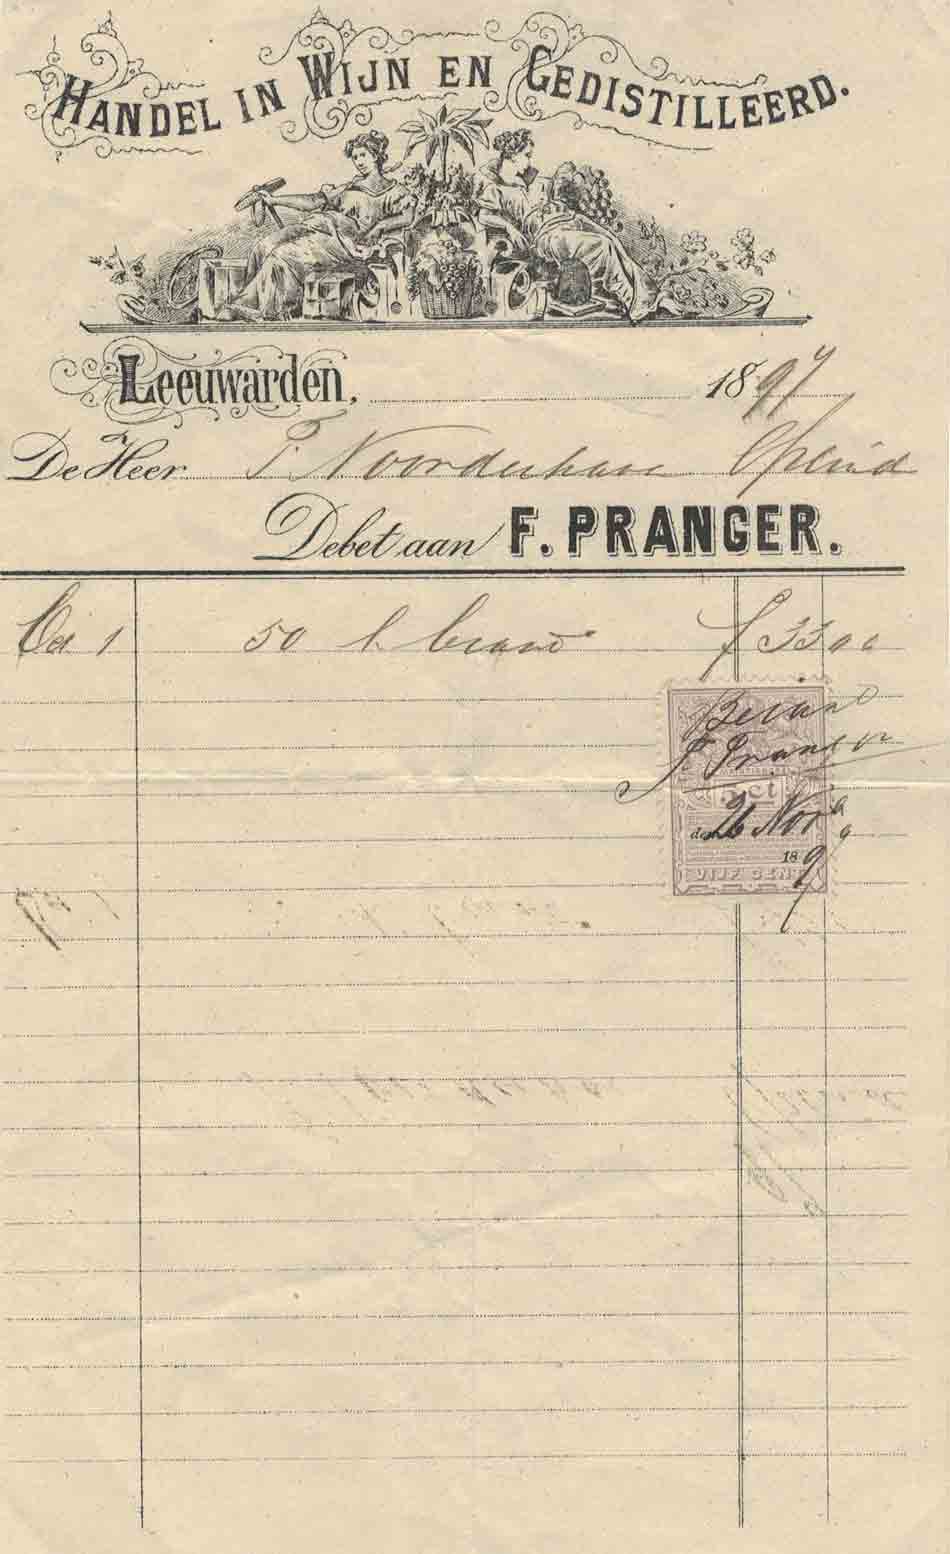 HANDEL IN WIJN EN GEDISTILLEERD.
Leeuwarden, 1897
De Heer P. Noordenhave Opeind
Debet aan F. PRANGER.
Oct 1 50 l. brand f 33 00
Betaald
F. Pranger
5 ct
den 26 Nov
1897
VIJF CENT